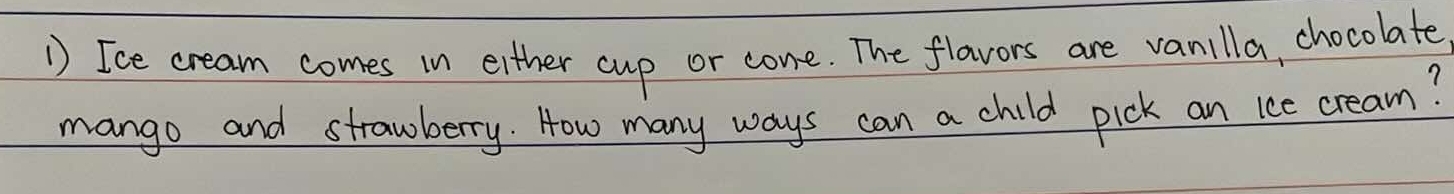 1) Ice cream comes in either cup or cone. The flavors are vanilla, chocolate,
mango and strawberry. How many ways can a child pick an ice cream?